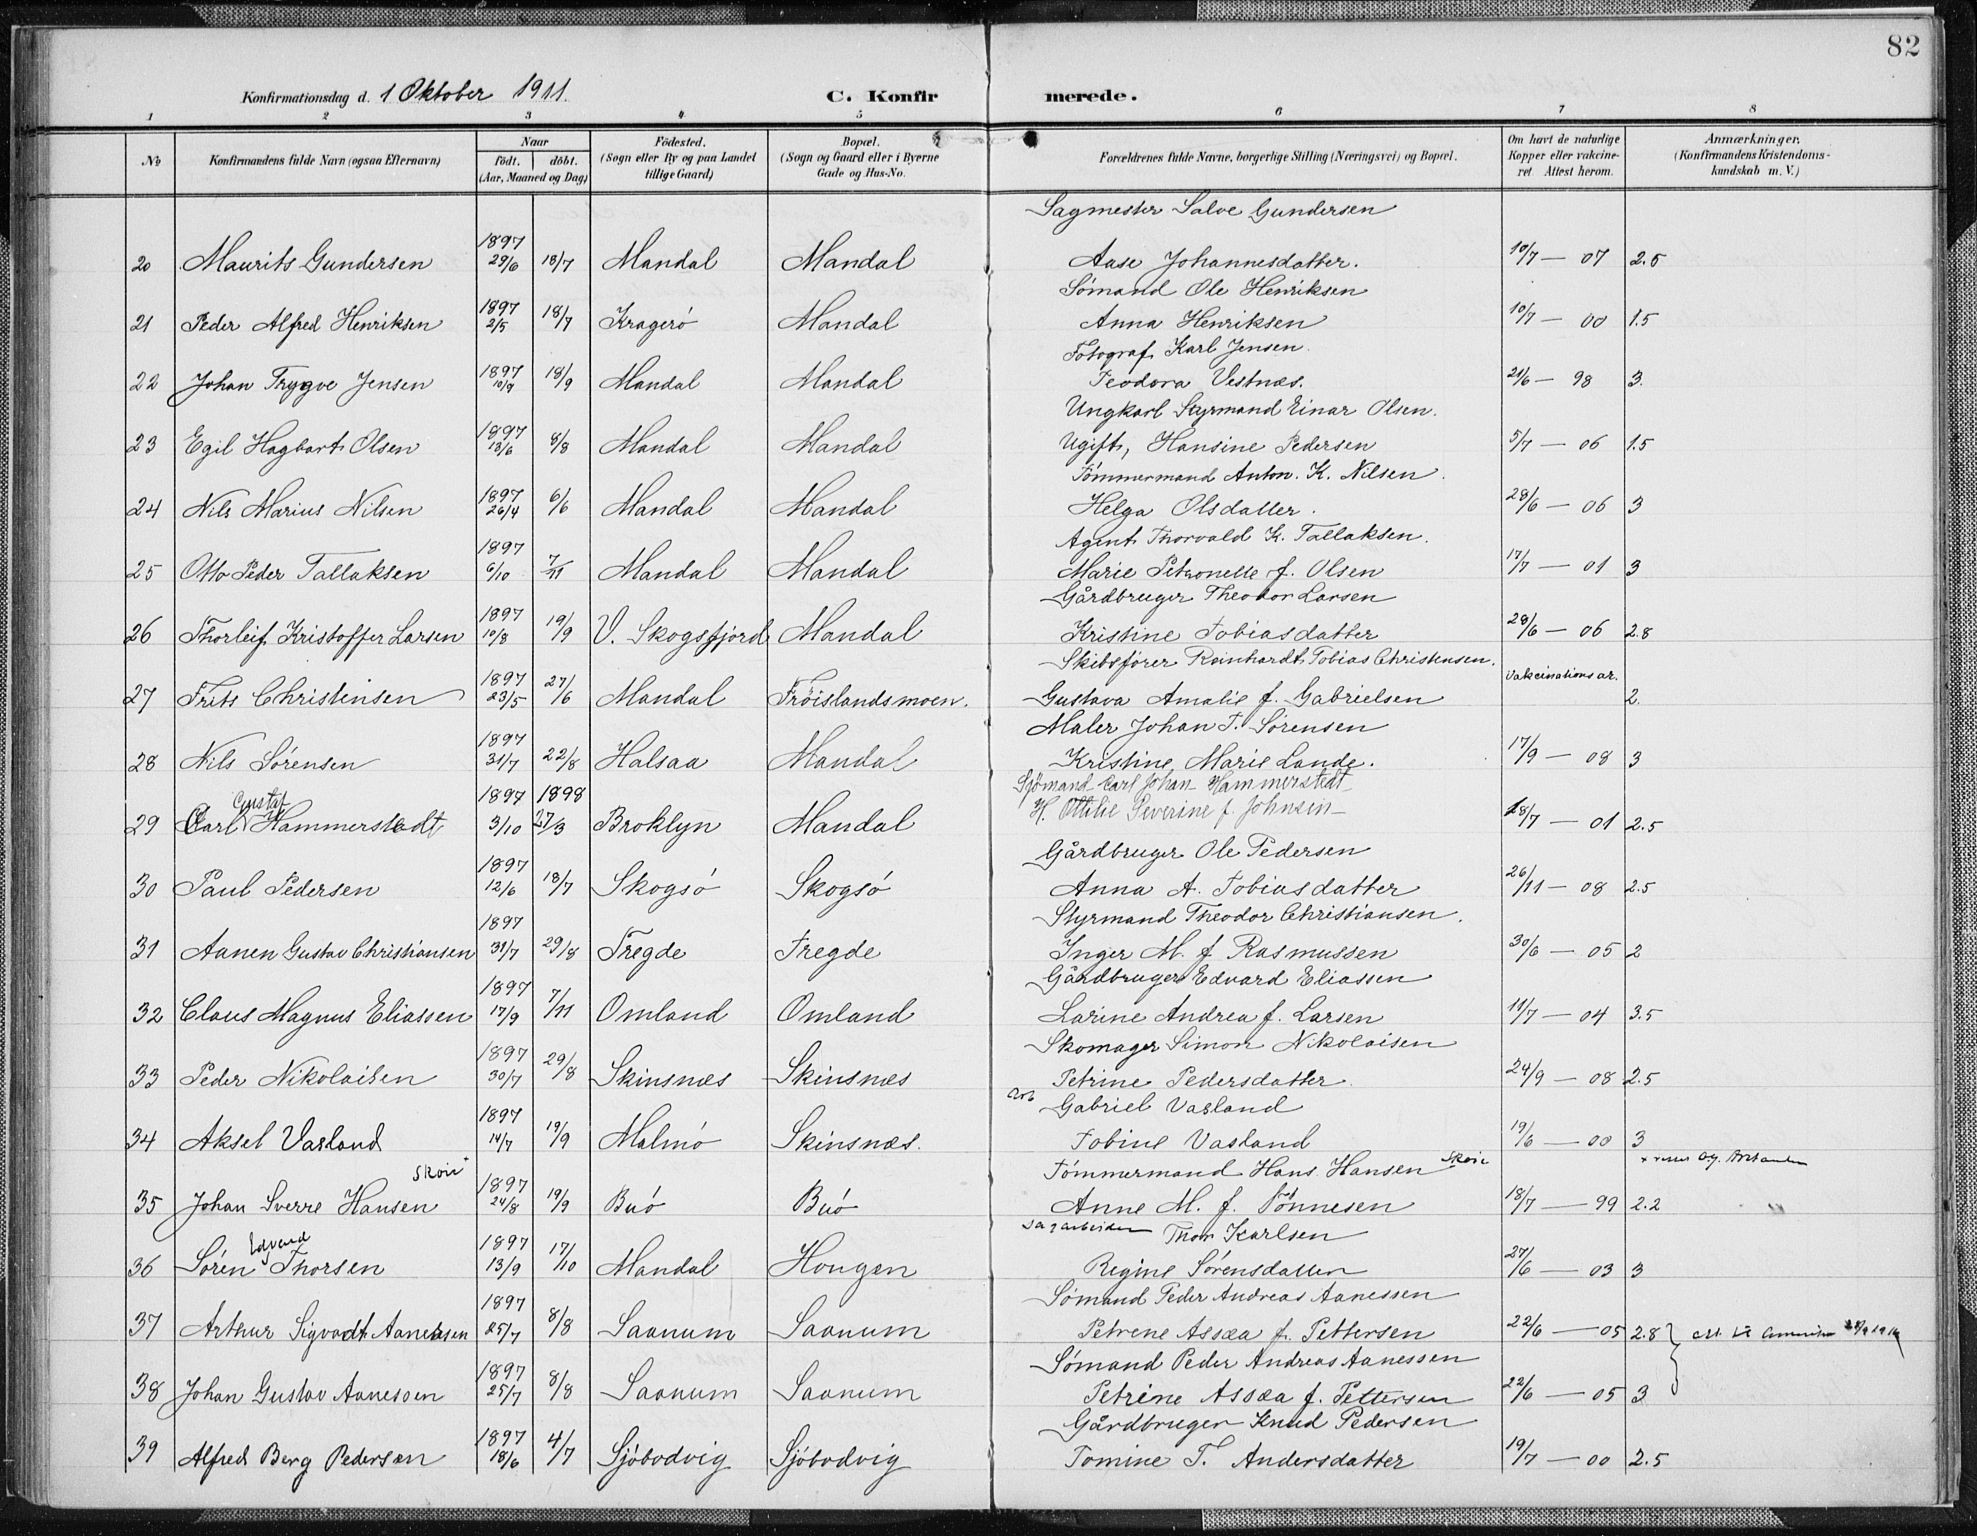 82
Konfirmationsdag d. 1 Oktober 1911.
C. Konfirmerede.
1 2 3 4 5 6 7 8
No
Konfirmandens fulde Navn (ogsaa Efternavn)
Naar
födt. döbt.
(Aar, Maaned og Dag)
Födested.
(Sogn eller By og paa Landet
tillige Gaard)
Bopæl.
(Sogn og Gaard eller i Byerne
Gade og Hus-No.
Forældrenes fulde Navne, borgerlige Stilling (Næringsvei) og Bopæl.
Om havt de naturlige
Kopper eller vakcine-
ret Attest herom.
Anmærkninger.
(Konfirmandens Kristendoms-
kundskab m. V.)
Sagmester Salve Gundersen
20 Maurits Gundersen 1897 29/6 18/7 Mandal Mandal Aase Johannesdatter. 10/7 — 07 2.5
Sømand Ole Henriksen
21 Peder Alfred Henriksen 1897 2/5 18/7 Kragerö Mandal Anna Henriksen 10/7 — 00 1.5
Fotograf Karl Jensen.
22 Johan Trygve Jensen 1897 10/9 18/9 Mandal Mandal Teodora Vestnæs. 21/6 — 98 3.
Ungkarl Styrmand Einar Olsen.
23 Egil Hagbart Olsen 1897 13/6 8/8 Mandal Mandal Ugift, Hansine Pedersen 5/7 — 06 1.5
Tömmermand Anton. K. Nilsen.
24 Nils Marius Nilsen 1897 26/4 6/6 Mandal Mandal Helga Olsdatter. 28/6 — 06 3
Agent Thorvald K. Tallaksen.
25 Otto Peder Tallaksen 1897 6/10 7/11 Mandal Mandal Marie Petronelle f. Olsen 17/7 — 01 3
Gårdbruger Theodor Larsen
26 Thorleif Kristoffer Larsen 1897 10/8 19/9 V. Skogsfjord Mandal Kristine Tobiasdatter 28/6 — 06 2.8
Skibsfører Reinhardt Tobias Christensen. Vakcinationsar.
27 Frits Christensen 1897 23/5 27/6 Mandal Frøislandsmoen. Gustava Amalie f. Gabrielsen 2.
Maler Johan T. Sørensen
28 Nils Sørensen 1897 31/7 22/8 Halsaa Mandal Kristine Marie Lande. 17/9 — 08 3
Sjømand Carl Johan Hammerstedt
Gustaf
29 Carl Hammerstedt 1897 3/10 1898 27/3 Broklyn Mandal H. Ottilie Severine f. Johnsen 18/7 — 01 2.5
Gårdbruger Ole Pedersen
30 Paul Pedersen 1897 12/6 18/7 Skogsö Skogsö Anna A. Tobiasdatter 26/11 — 08 2.5
Styrmand Theodor Christiansen.
31 Aanen Gustav Christiansen 1897 31/7 29/8 Tregde Tregde Inger M. f Rasmussen 30/6 — 05 2
Gårdbruger Edvard Eliassen
32 Claus Magnus Eliassen 1897 17/9 7/11 Omland Omland Larine Andrea f. Larsen 11/7 — 04 3.5
Skomager Simon Nikolaisen
33 Peder Nikolaisen 1897 30/7 29/8 Skinsnes Skinsnæs Petrine Pedersdatter. 24/9 — 08 2.5
Arb Gabriel Vasland
34 Aksel Vasland 1897 14/7 19/9 Malmö Skinsnæs. Tobine Vasland 19/6 — 00 3
Skoie Tömmermand Hans Hansen Skoie
35 Johan Sverre Hansen 1897 24/8 19/9 Buö Buö Anne M. f. Tönnesen 18/7 — 99 2.2
Sagarbeider Thor Karlsen
Edvard
36 Sören Thorsen 1897 13/9 17/10 Mandal Hougen Regine Sörensdatter 27/6 — 03 3
Sömand Peder Andreas Aanessen
37 Arthur Sigvadt Aanensen 1897 25/7 8/8 Saanum Saanum Petrene Assæa f. Pettersen 22/6 — 05 2.8
Sömand Peder Andreas Aanessen
38 Johan Gustav Aanessen 1897 25/7 8/8 Saanum Saanum Petrine Assæa f. Pettersen 22/6 — 05 3
Gårdbruger Knud Pedersen
39 Alfred Berg Pedersen 1897 18/6 4/7 Sjöbodvig Sjöbodvig Tomine T. Andersdatter 19/7 — 00 2.5